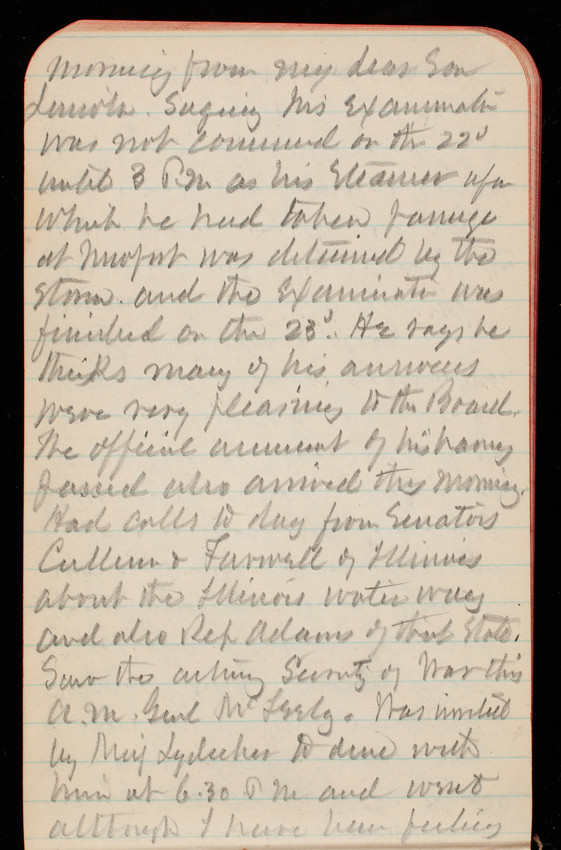 morning from my dear Son
Lincoln. Saying his Examination
was not commenced on the 22d
until 3 P.M. as his Steamer upon
which he had taken passage
at Newport was detained by the
storm. and the Examination was
finished on the 23d. He says he
thinks many of his answers
were very pleasing to the Board.
The official announcement of his having
passed also arrived this morning.
Had calls to day from Senators
Cullum & Farwell of Illinois
about the Illinois water way
and also Rep Adams of that State.
Saw the acting Secretary of War this
A.M. Genl McFeely. Was invited
by Maj Lydecker to dine with
him at 6.30 P.M. and went
although I have been feeling